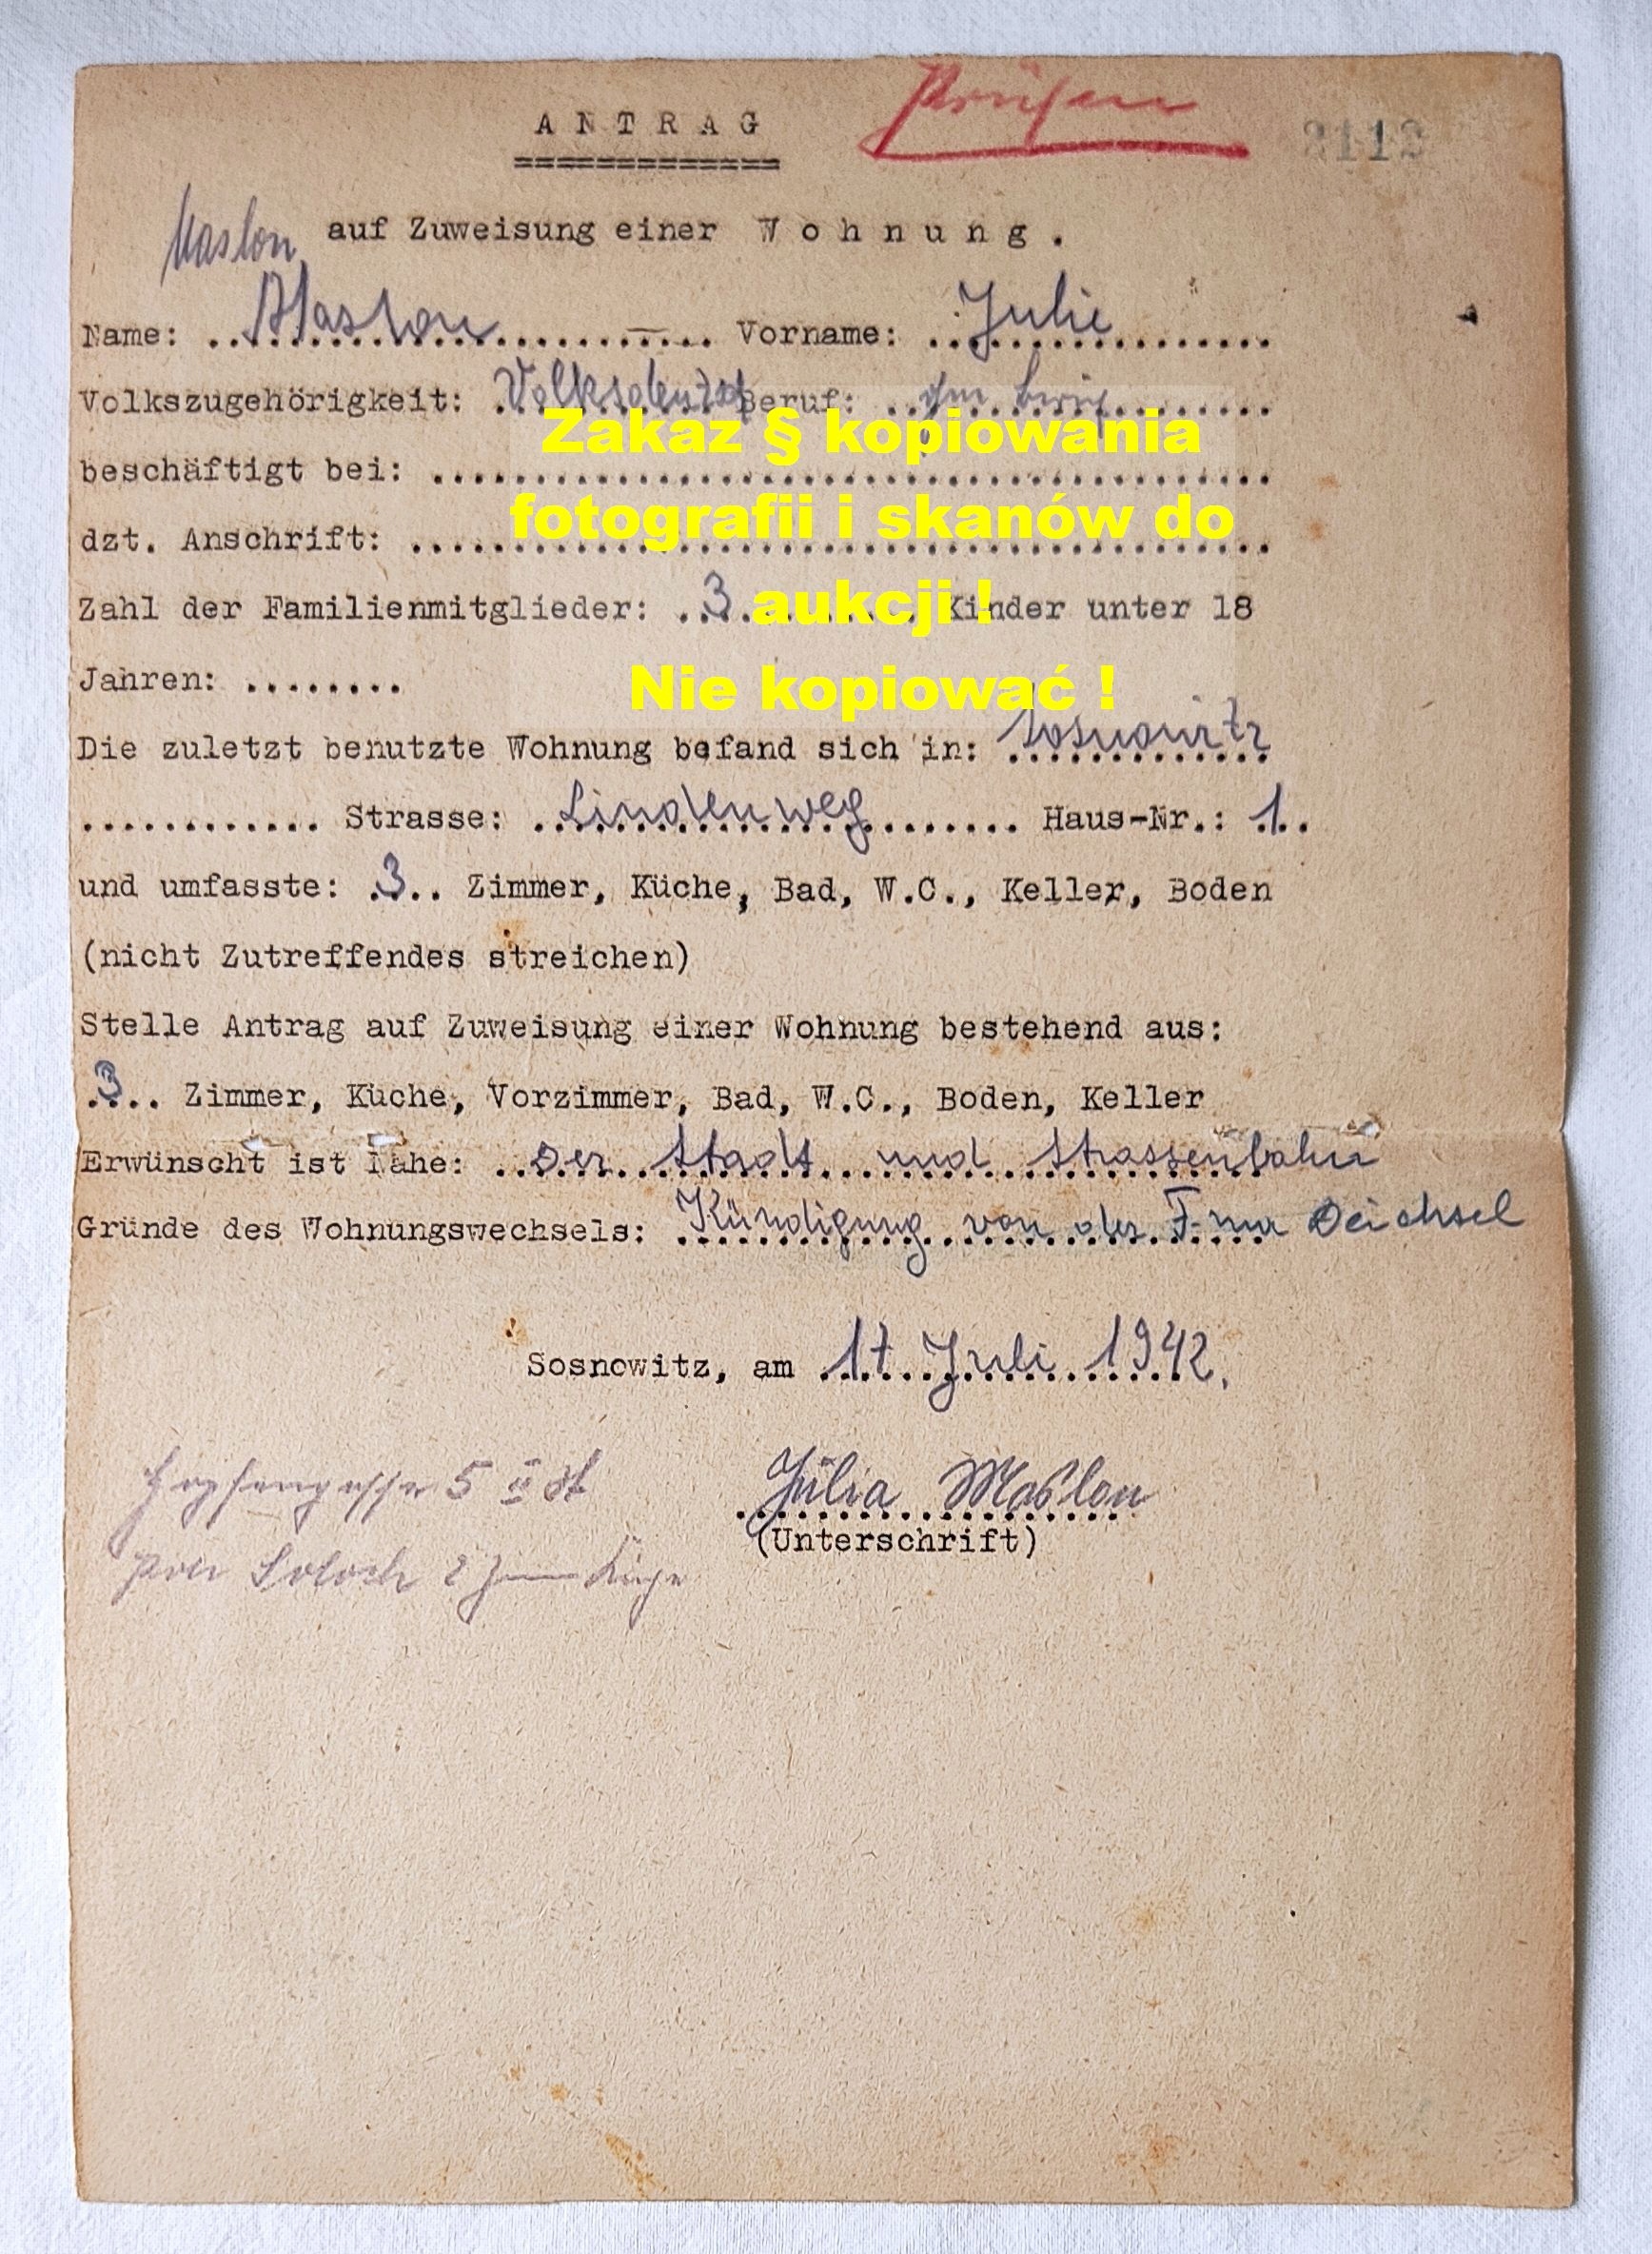 ANTRAG
Prüfen
2112
Maslon
auf Zuweisung einer Wohnung.
Name: Maslon Vorname: Julie
Volkszugehörigkeit: Volksdeutsch Beruf:
beschäftigt bei:
dzt. Anschrift:
Zahl der Familienmitglieder: 3 Kinder unter 18
Jahren:
Zakaz § kopiowania
fotografii i skanów do
aukcji !
Nie kopiować !
Die zuletzt benutzte Wohnung befand sich in: Sosnowitz
Strasse: Lindenweg Haus-Nr.: 1
und umfasste: 3 Zimmer, Küche, Bad, W.C., Keller, Boden
(nicht Zutreffendes streichen)
Stelle Antrag auf Zuweisung einer Wohnung bestehend aus:
3 Zimmer, Küche, Vorzimmer, Bad, W.C., Boden, Keller
Erwünscht ist Nähe: der Stadt und Strassenbahn
Gründe des Wohnungswechsels: Kündigung von der Deichsel
Sosnowitz, am 17. Juli 1942.
Julia Maslon
(Unterschrift)
5 II
2